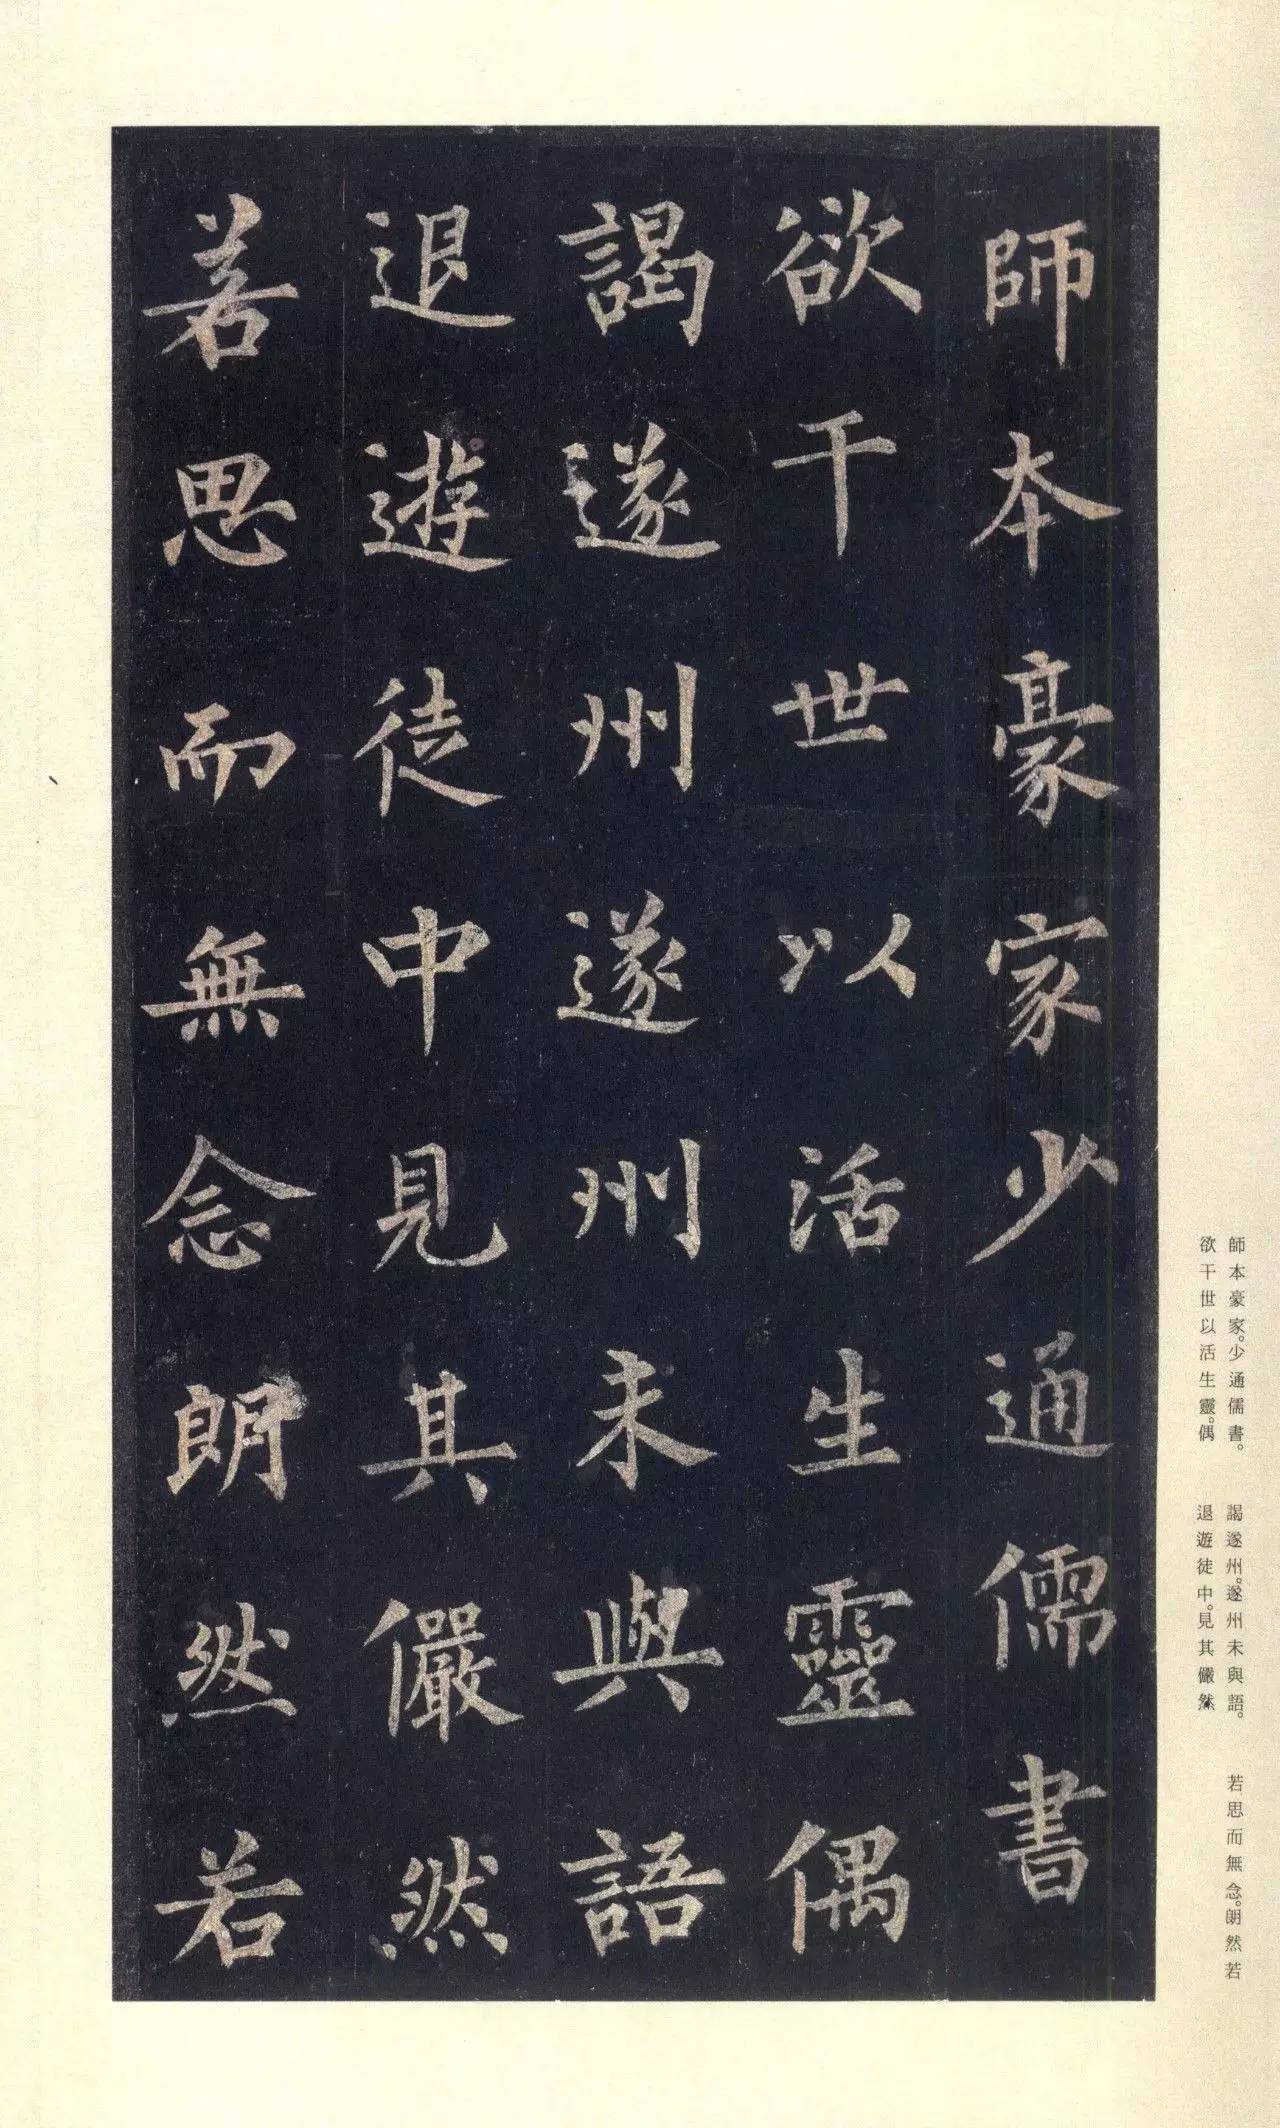 師本豪家少通儒書
欲干世以活生靈偶
謁遂州遂州未與語
退遊徒中見其儼然
若思而無念朗然若
師本豪家。少通儒書。
欲干世以活生靈。偶
謁遂州。遂州未與語。
退遊徒中。見其儼然
若思而無念。朗然若